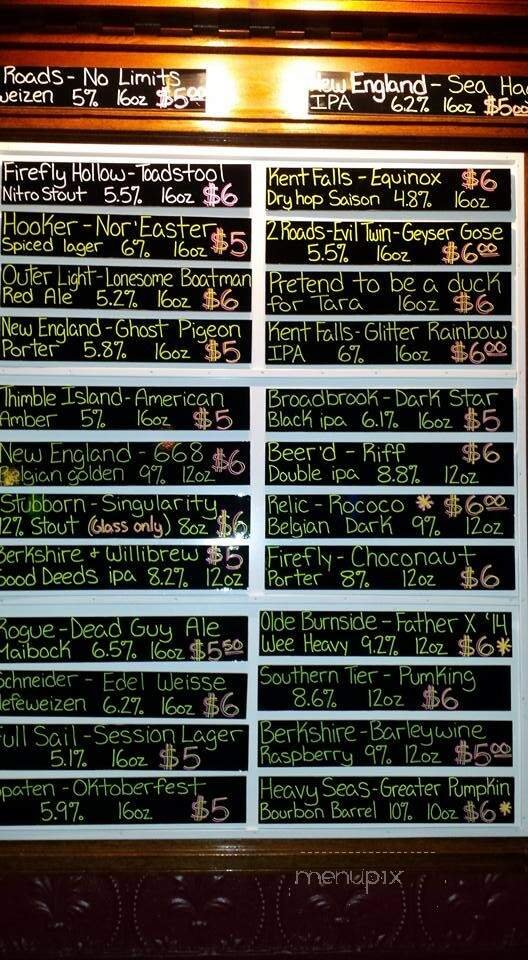 Roads - No Limits
weizen 5% 16oz $5.00
New England - Sea Hag
IPA 6.2% 16oz $5.00
Firefly Hollow - Toadstool
Nitro Stout 5.5% 16oz $6
Hooker - Nor'Easter
Spiced lager 6% 16oz $5
Outer Light - Lonesome Boatman
Red Ale 5.2% 16oz $6
New England - Ghost Pigeon
Porter 5.8% 16oz $5
Thimble Island - American
Amber 5% 16oz $5
New England - 668
Belgian golden 9% 12oz $6
Stubborn - Singularity
12% Stout (Glass only) 8oz $6
Berkshire & Willibrew $5
Good Deeds ipa 8.2% 12oz
Rogue - Dead Guy Ale
Maibock 6.5% 16oz $5.50
Schneider - Edel Weisse
Hefeweizen 6.2% 16oz $6
Full Sail - Session Lager
5.1% 16oz $5
Spaten - Oktoberfest
5.9% 16oz $5
Kent Falls - Equinox $6
Dry hop Saison 4.8% 16oz
2 Roads - Evil Twin - Geyser Gose
5.5% 16oz $6.00
Pretend to be a duck
for Tara 16oz $6
Kent Falls - Glitter Rainbow
IPA 6% 16oz $6.00
Broadbrook - Dark Star
Black ipa 6.1% 16oz $5
Beer'd - Riff $6
Double ipa 8.8% 12oz
Relic - Rococo * $6.00
Belgian Dark 9% 12oz
Firefly - Choconaut
Porter 8% 12oz $6
Olde Burnside - Father X '14
Wee Heavy 9.2% 12oz $6*
Southern Tier - Pumking
8.6% 12oz $6
Berkshire - Barleywine
Raspberry 9% 12oz $5.00
Heavy Seas - Greater Pumpkin
Bourbon Barrel 10% 10oz $6*
menupix